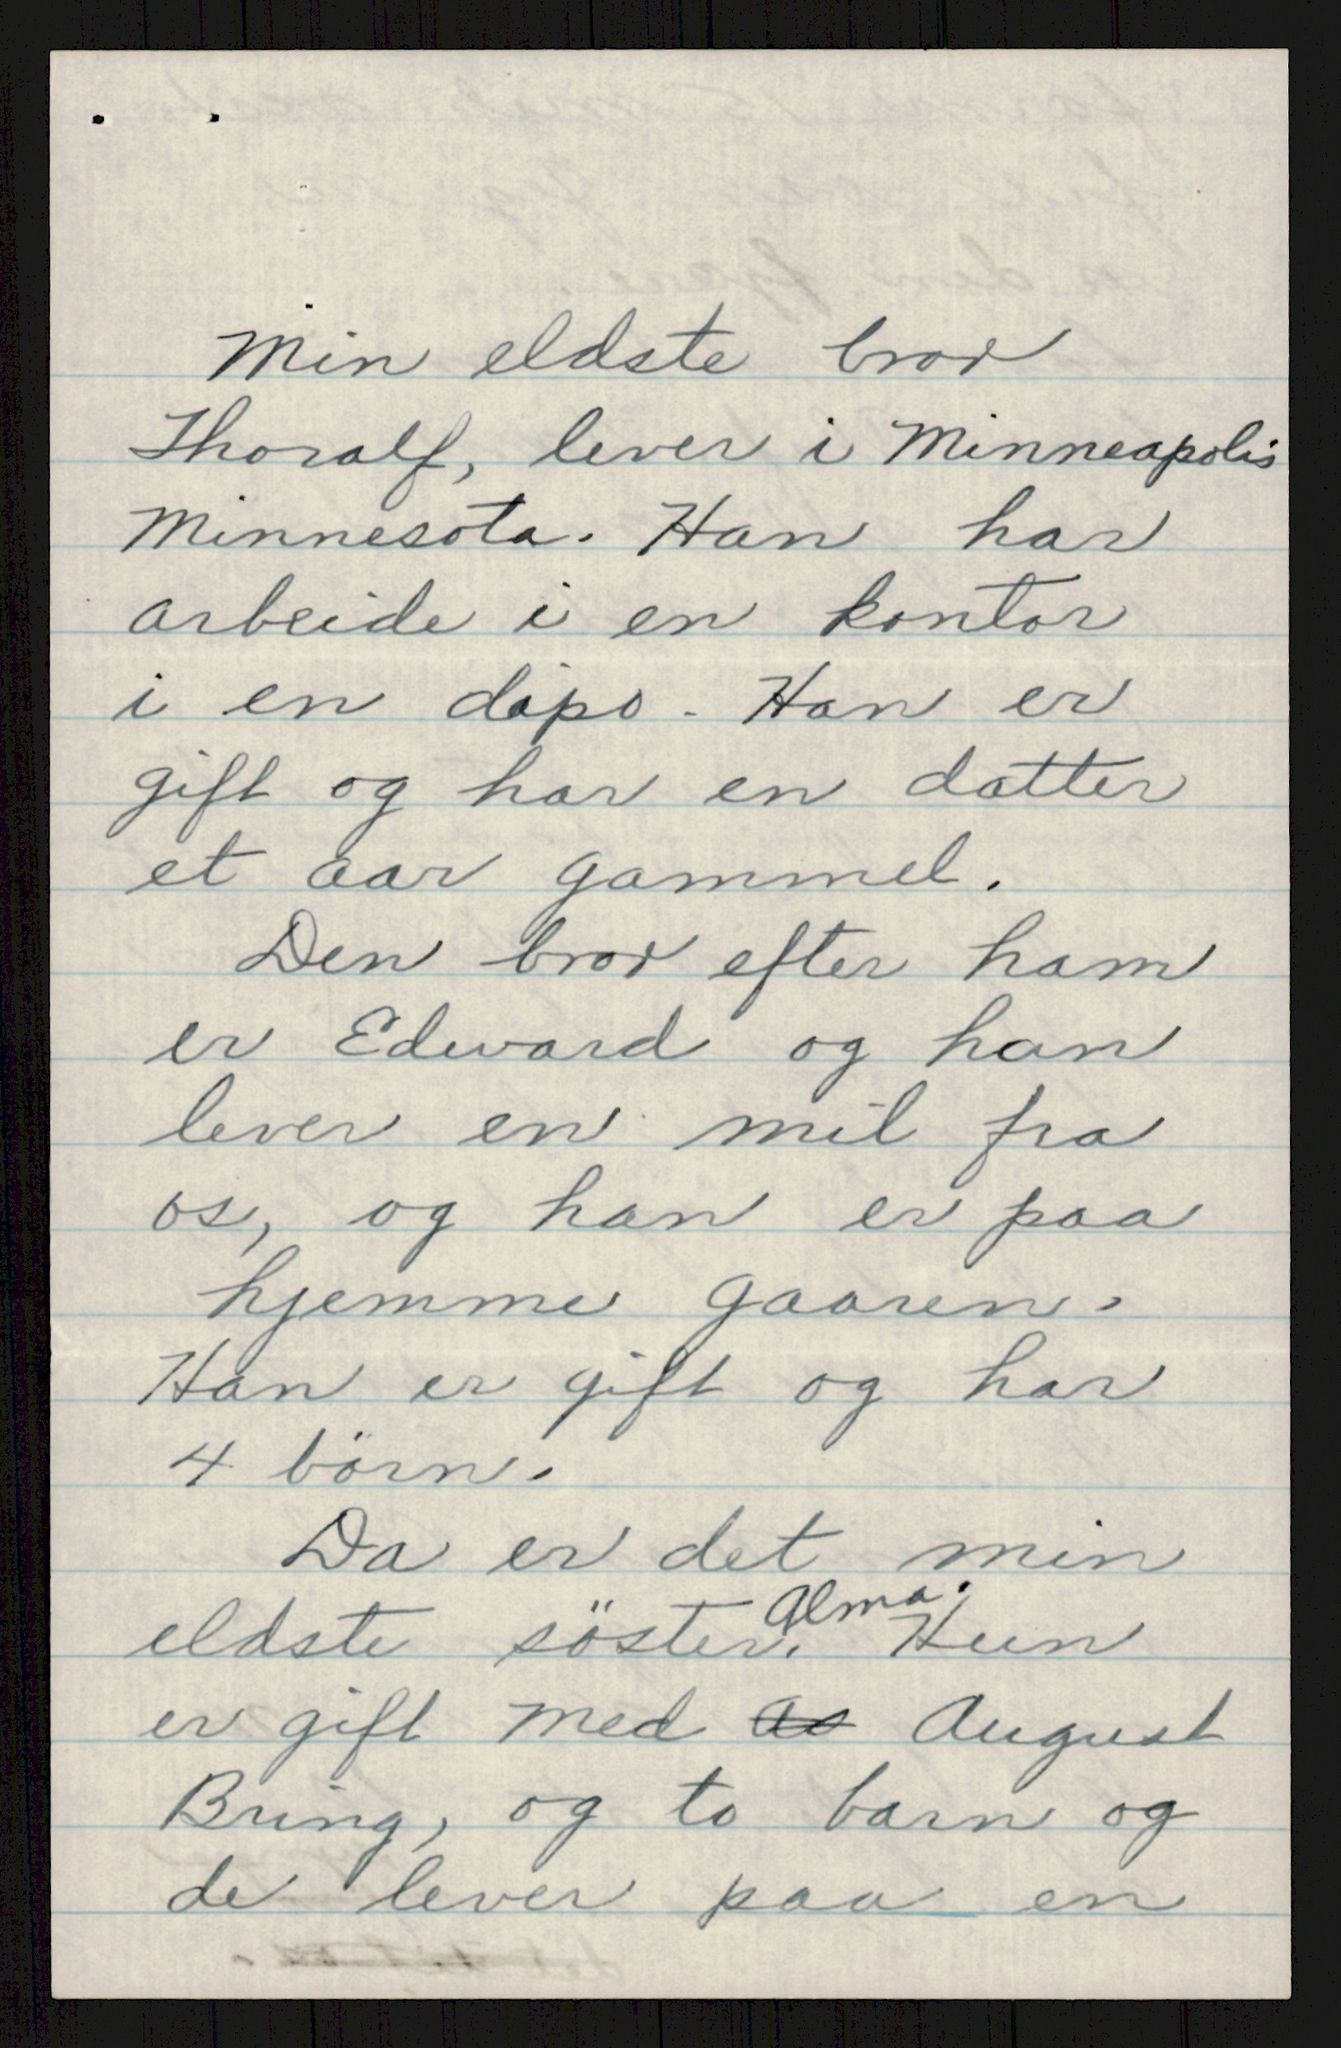 Min eldste bror
Thoralf, lever i Minneapolis
Minnesota. Han har
arbeide i en kontor
i en dipo. Han er
gift og har en datter
et aar gammel.
Den bror efter ham
er Edward og han
lever en mil fra
os, og han er paa
hjemme gaaren.
Han er gift og har
4 börn.
Da er det min
eldste söster. Alma. Hun
er gift med as August
Bring, og to barn og
de lever paa en